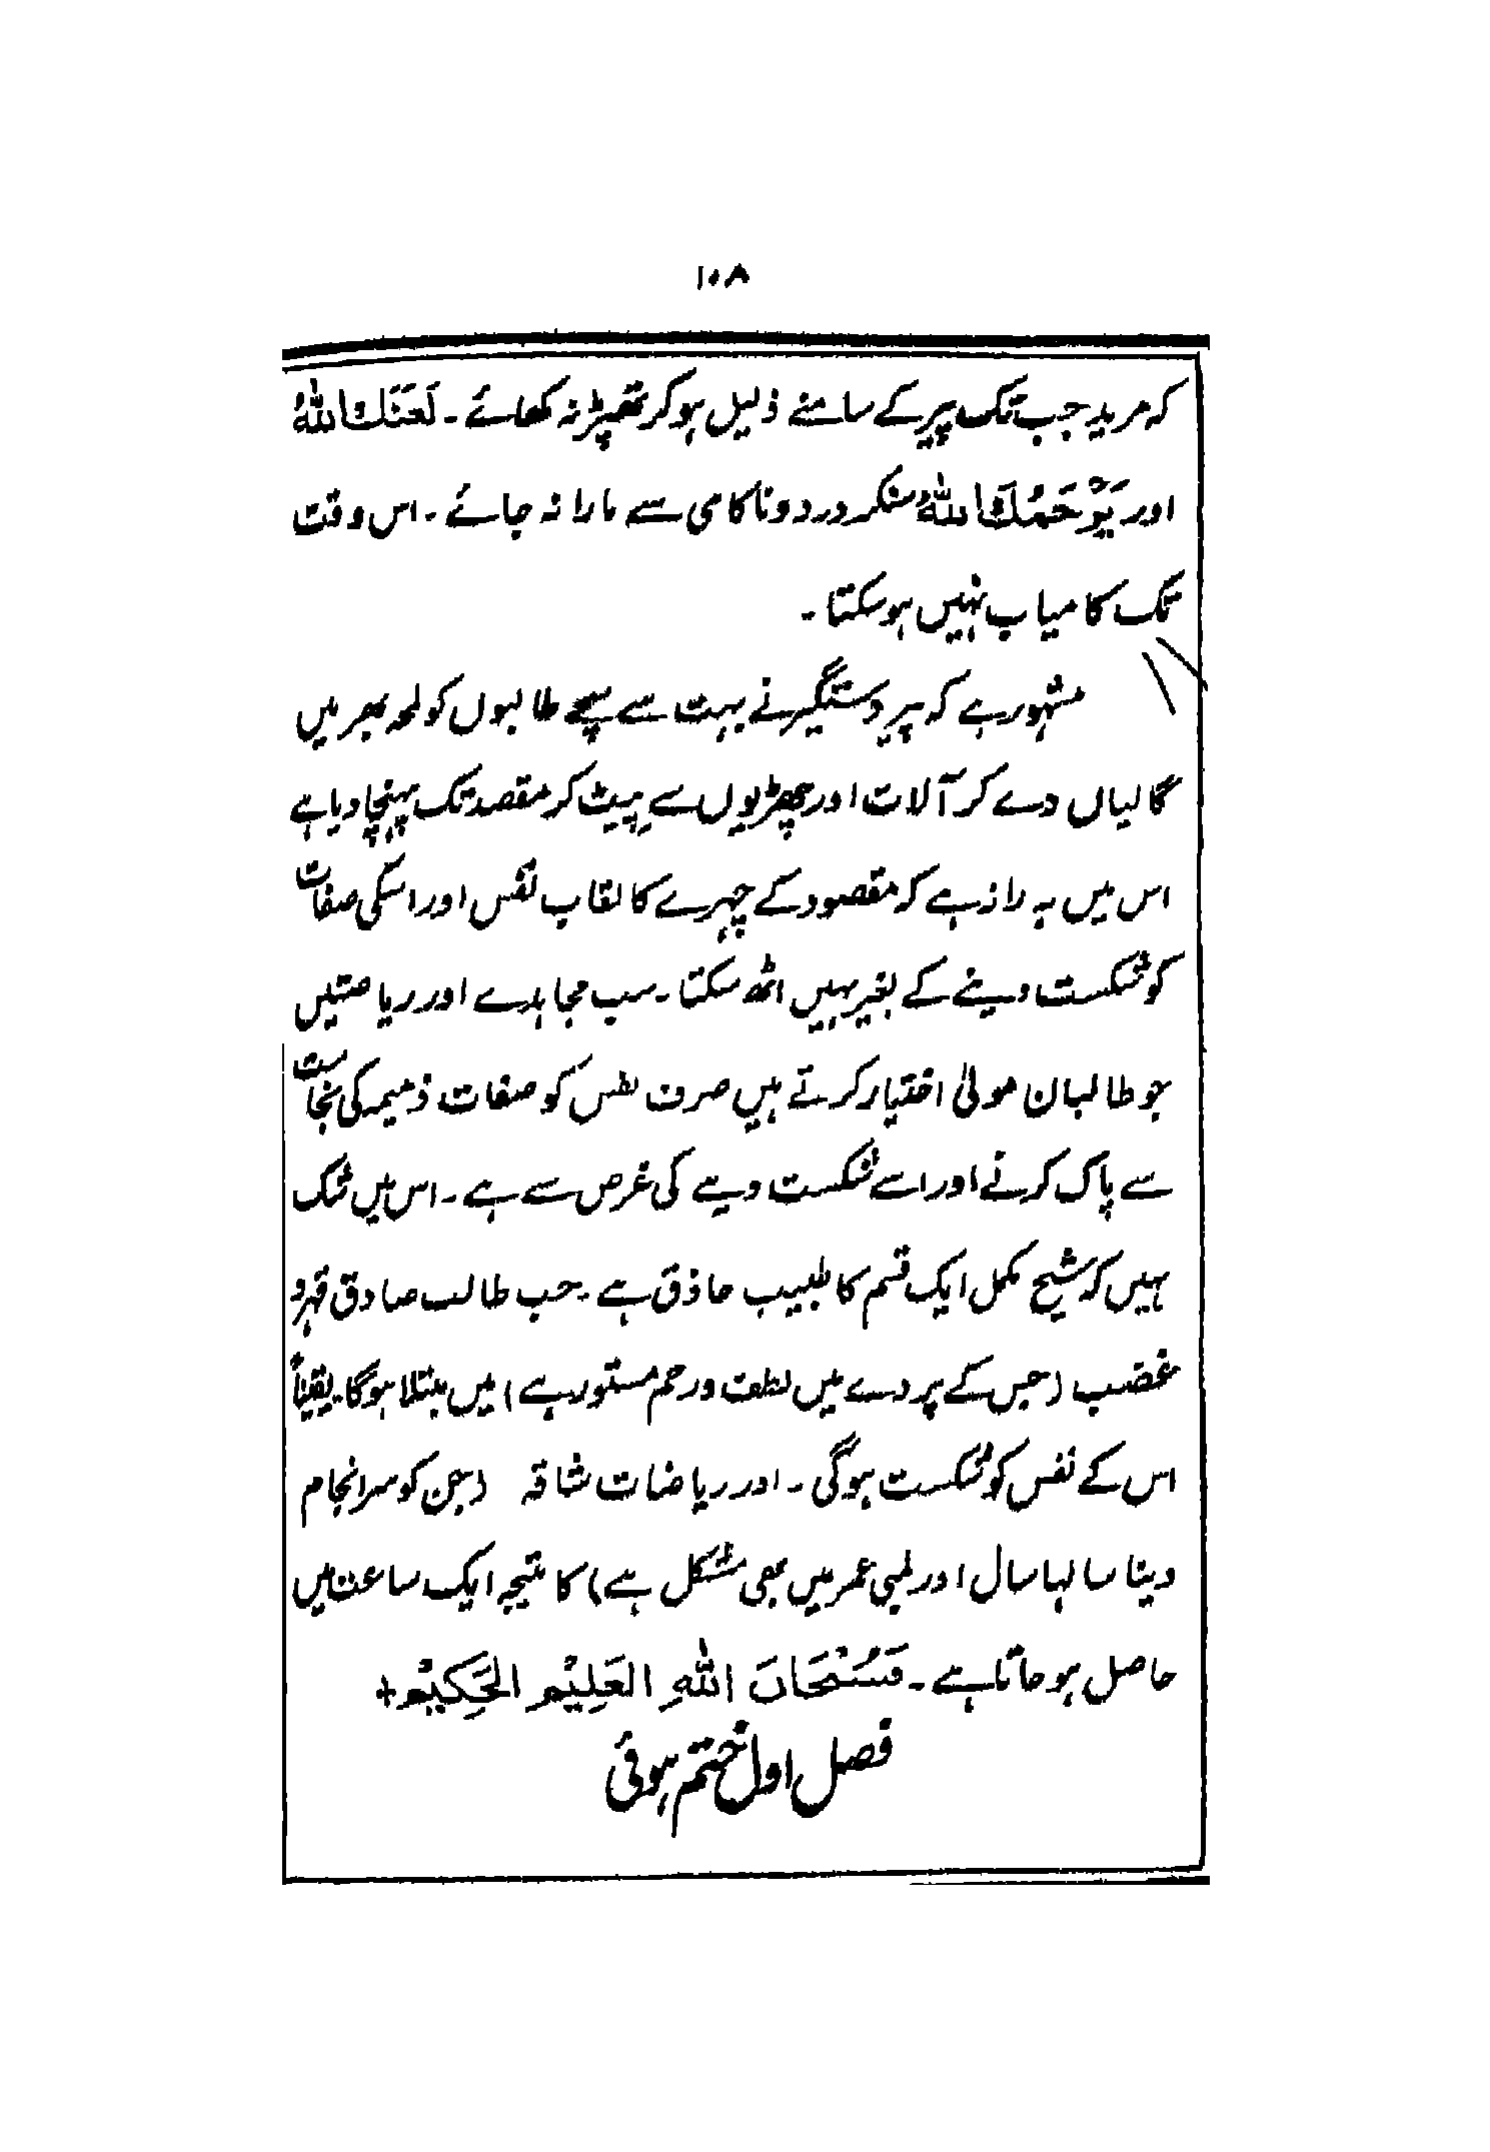 ۱۰۸
کہ مرید جب تک پیر کے سامنے ذلیل ہو کر تھپڑ نہ کھائے۔ لَعَنَكَ اللّٰهُ
اور يَرْحَمُكَ اللّٰهُ سنکر درد و ناکامی سے مارا نہ جائے۔ اس وقت
تک کامیاب نہیں ہو سکتا۔
مشہور ہے کہ پیر دستگیر نے بہت سے سچے طالبوں کو لمحہ بھر میں
گالیاں دے کر آلات اور چھڑیوں سے پیٹ کر مقصد تک پہنچا دیا ہے
اس میں یہ راز ہے کہ مقصود کے چہرے کا نقاب نفس اور اسکی صفات
کو شکست دینے کے بغیر نہیں اٹھ سکتا۔ سب مجاہدے اور ریاضتیں
جو طالبان مولیٰ اختیار کرتے ہیں صرف نفس کو صفات ذمیمہ کی نجاست
سے پاک کرنے اور اسے شکست دینے کی غرض سے ہے۔ اس میں شک
نہیں کہ شیخ مکمل ایک قسم کا طبیب حاذق ہے۔ جب طالب صادق قہر و
غضب (جس کے پردے میں لطف و رحم مستور ہے) میں مبتلا ہو گا۔ یقیناً
اس کے نفس کو شکست ہو گی۔ اور ریاضات شاقہ (جن کو سرانجام
دینا سالہا سال اور لمبی عمر میں بھی مشکل ہے) کا نتیجہ ایک ساعت میں
حاصل ہو جاتا ہے۔ فَسُبْحَانَ اللّٰهِ الْعَلِيْمِ الْحَكِيْمِ +
فصل اول ختم ہوئی